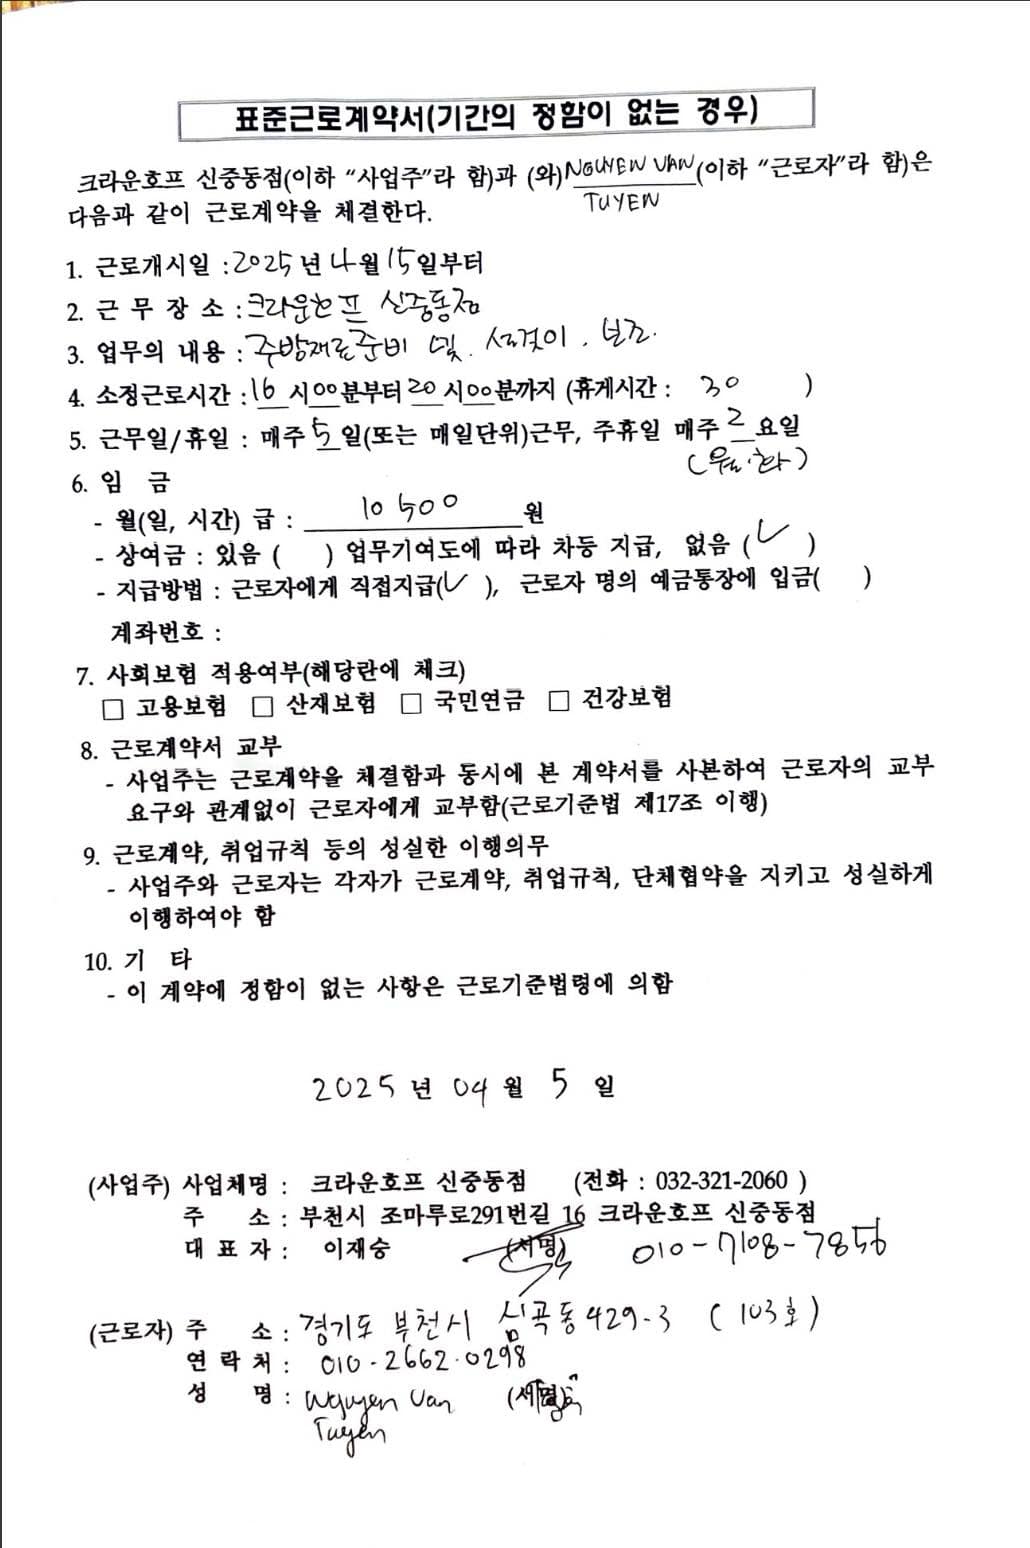 표준근로계약서(기간의 정함이 없는 경우)
크라운호프 신중동점(이하 “사업주”라 함)과 (와)NGUYEN VAN TUYEN(이하 “근로자”라 함)은
다음과 같이 근로계약을 체결한다.
1. 근로개시일 :2025년 4월 15일부터
2. 근 무 장 소 :크라운호프 신중동점
3. 업무의 내용 : 주방재료준비 및. 설겆이 . 보조.
4. 소정근로시간 :16 시00분부터 20 시00분까지 (휴게시간 : 30 )
5. 근무일/휴일 : 매주 5 일(또는 매일단위)근무, 주휴일 매주 2 요일
(월.화)
6. 임 금
- 월(일, 시간) 급 : 10500 원
- 상여금 : 있음 ( ) 업무기여도에 따라 차등 지급, 없음 (✓)
- 지급방법 : 근로자에게 직접지급(✓), 근로자 명의 예금통장에 입금( )
계좌번호 :
7. 사회보험 적용여부(해당란에 체크)
□ 고용보험 □ 산재보험 □ 국민연금 □ 건강보험
8. 근로계약서 교부
- 사업주는 근로계약을 체결함과 동시에 본 계약서를 사본하여 근로자의 교부
요구와 관계없이 근로자에게 교부함(근로기준법 제17조 이행)
9. 근로계약, 취업규칙 등의 성실한 이행의무
- 사업주와 근로자는 각자가 근로계약, 취업규칙, 단체협약을 지키고 성실하게
이행하여야 함
10. 기 타
- 이 계약에 정함이 없는 사항은 근로기준법령에 의함
2025 년 04 월 5 일
(사업주) 사업체명 : 크라운호프 신중동점 (전화 : 032-321-2060 )
주 소 : 부천시 조마루로291번길 16 크라운호프 신중동점
대 표 자 : 이재승 (서명) 010-7108-7856
(근로자) 주 소 : 경기도 부천시 심곡동 429-3 (103호)
연 락 처 : 010-2662.0298
성 명 : Nguyen Van (서명)
Tuyen